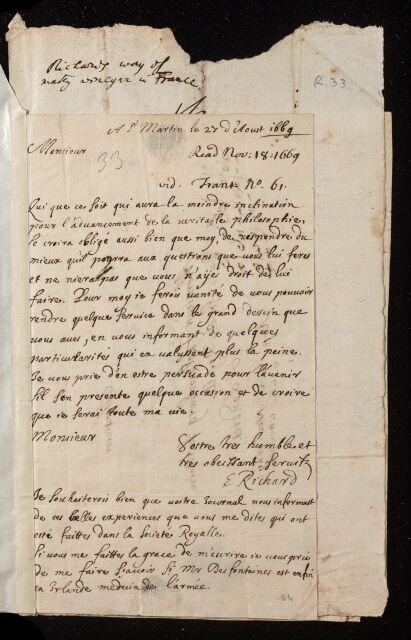 Richards way of
making vineger in France
R. 33
A St Martin le 27 d'Aoust 1669
Monsieur
33
Read Nov: 18: 1669
vid. Trans. No. 61.
Qui que ce soit qui aura la moindre inclination
pour l'advancement de la veritable philosophie,
se croira obligé aussi bien que moy, de respondre du
mieux qu'il pourra aux questions que vous lui feres
et ne niera pas que vous n'ayes droit de les lui
faire. Pour moy ie ferois vanité de vous pouvoir
rendre quelque service dans le grand dessein que
vous aves, en vous informant de quelques
particularites qui en valussent plus la peine.
Je vous prie d'en estre persuadé pour l'avenir
s'il s'en presente quelque occasion et de croire
que ie serai toute ma vie.
Monsieur
Vostre tres humble et
tres obeissant servitr
E Richard
Je souhaiterois bien que vostre Journal nous informast
de ces belles experiences que vous me dites qui ont
esté faittes dans la Societe Royalle.
Si vous me faittes la grace de m'escrire ie vous prie
de me faire scavoir si Mr Des fontaines est enfin
en Irlande medecin de l'armée.